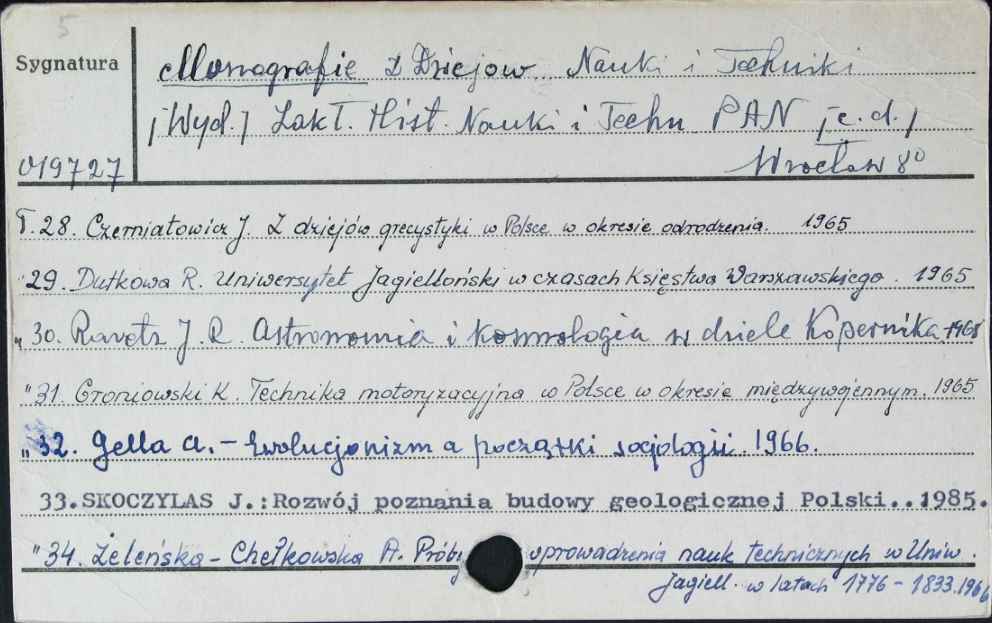 5
Sygnatura
Monografie z Dziejów Nauki i Techniki
/Wyd./ Zakł. Hist. Nauki i Techn PAN /c.d./
019727 Wrocław 8°
T. 28. Czerniatowicz J. Z dziejów grecystyki w Polsce w okresie odrodzenia. 1965
" 29. Dutkowa R. Uniwersytet Jagielloński w czasach Księstwa Warszawskiego. 1965
" 30. Ravetz J. R. Astronomia i kosmologia w dziele Kopernika 1965
" 31. Groniowski K. Technika motoryzacyjna w Polsce w okresie międzywojennym. 1965
" 32. Gella A. - Ewolucjonizm a początki socjologii. 1966.
33. SKOCZYLAS J.: Rozwój poznania budowy geologicznej Polski..1985.
" 34. Zeleńska-Chełkowska A. Próby wprowadzenia nauk technicznych w Uniw.
Jagiell. w latach 1776-1833. 1966